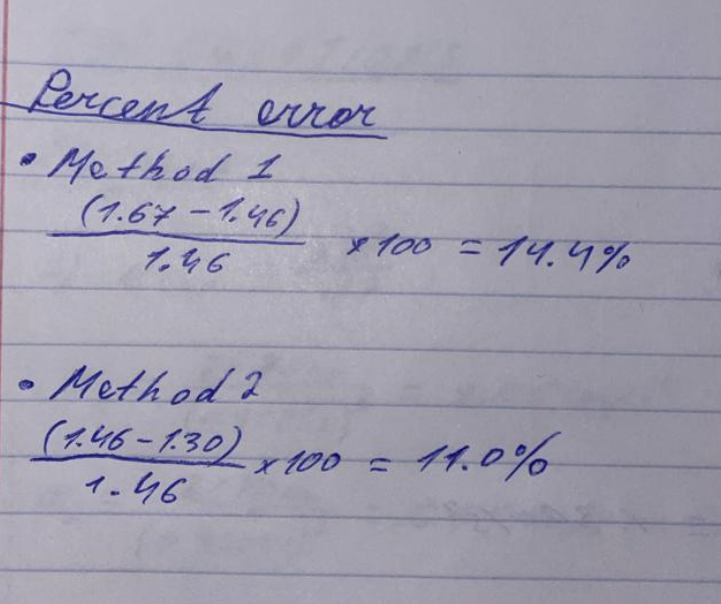 Percent error
• Method 1
(1.67 - 1.46)
1.46
× 100 = 14.4%
• Method 2
(1.46 - 1.30)
1.46
× 100 = 11.0%